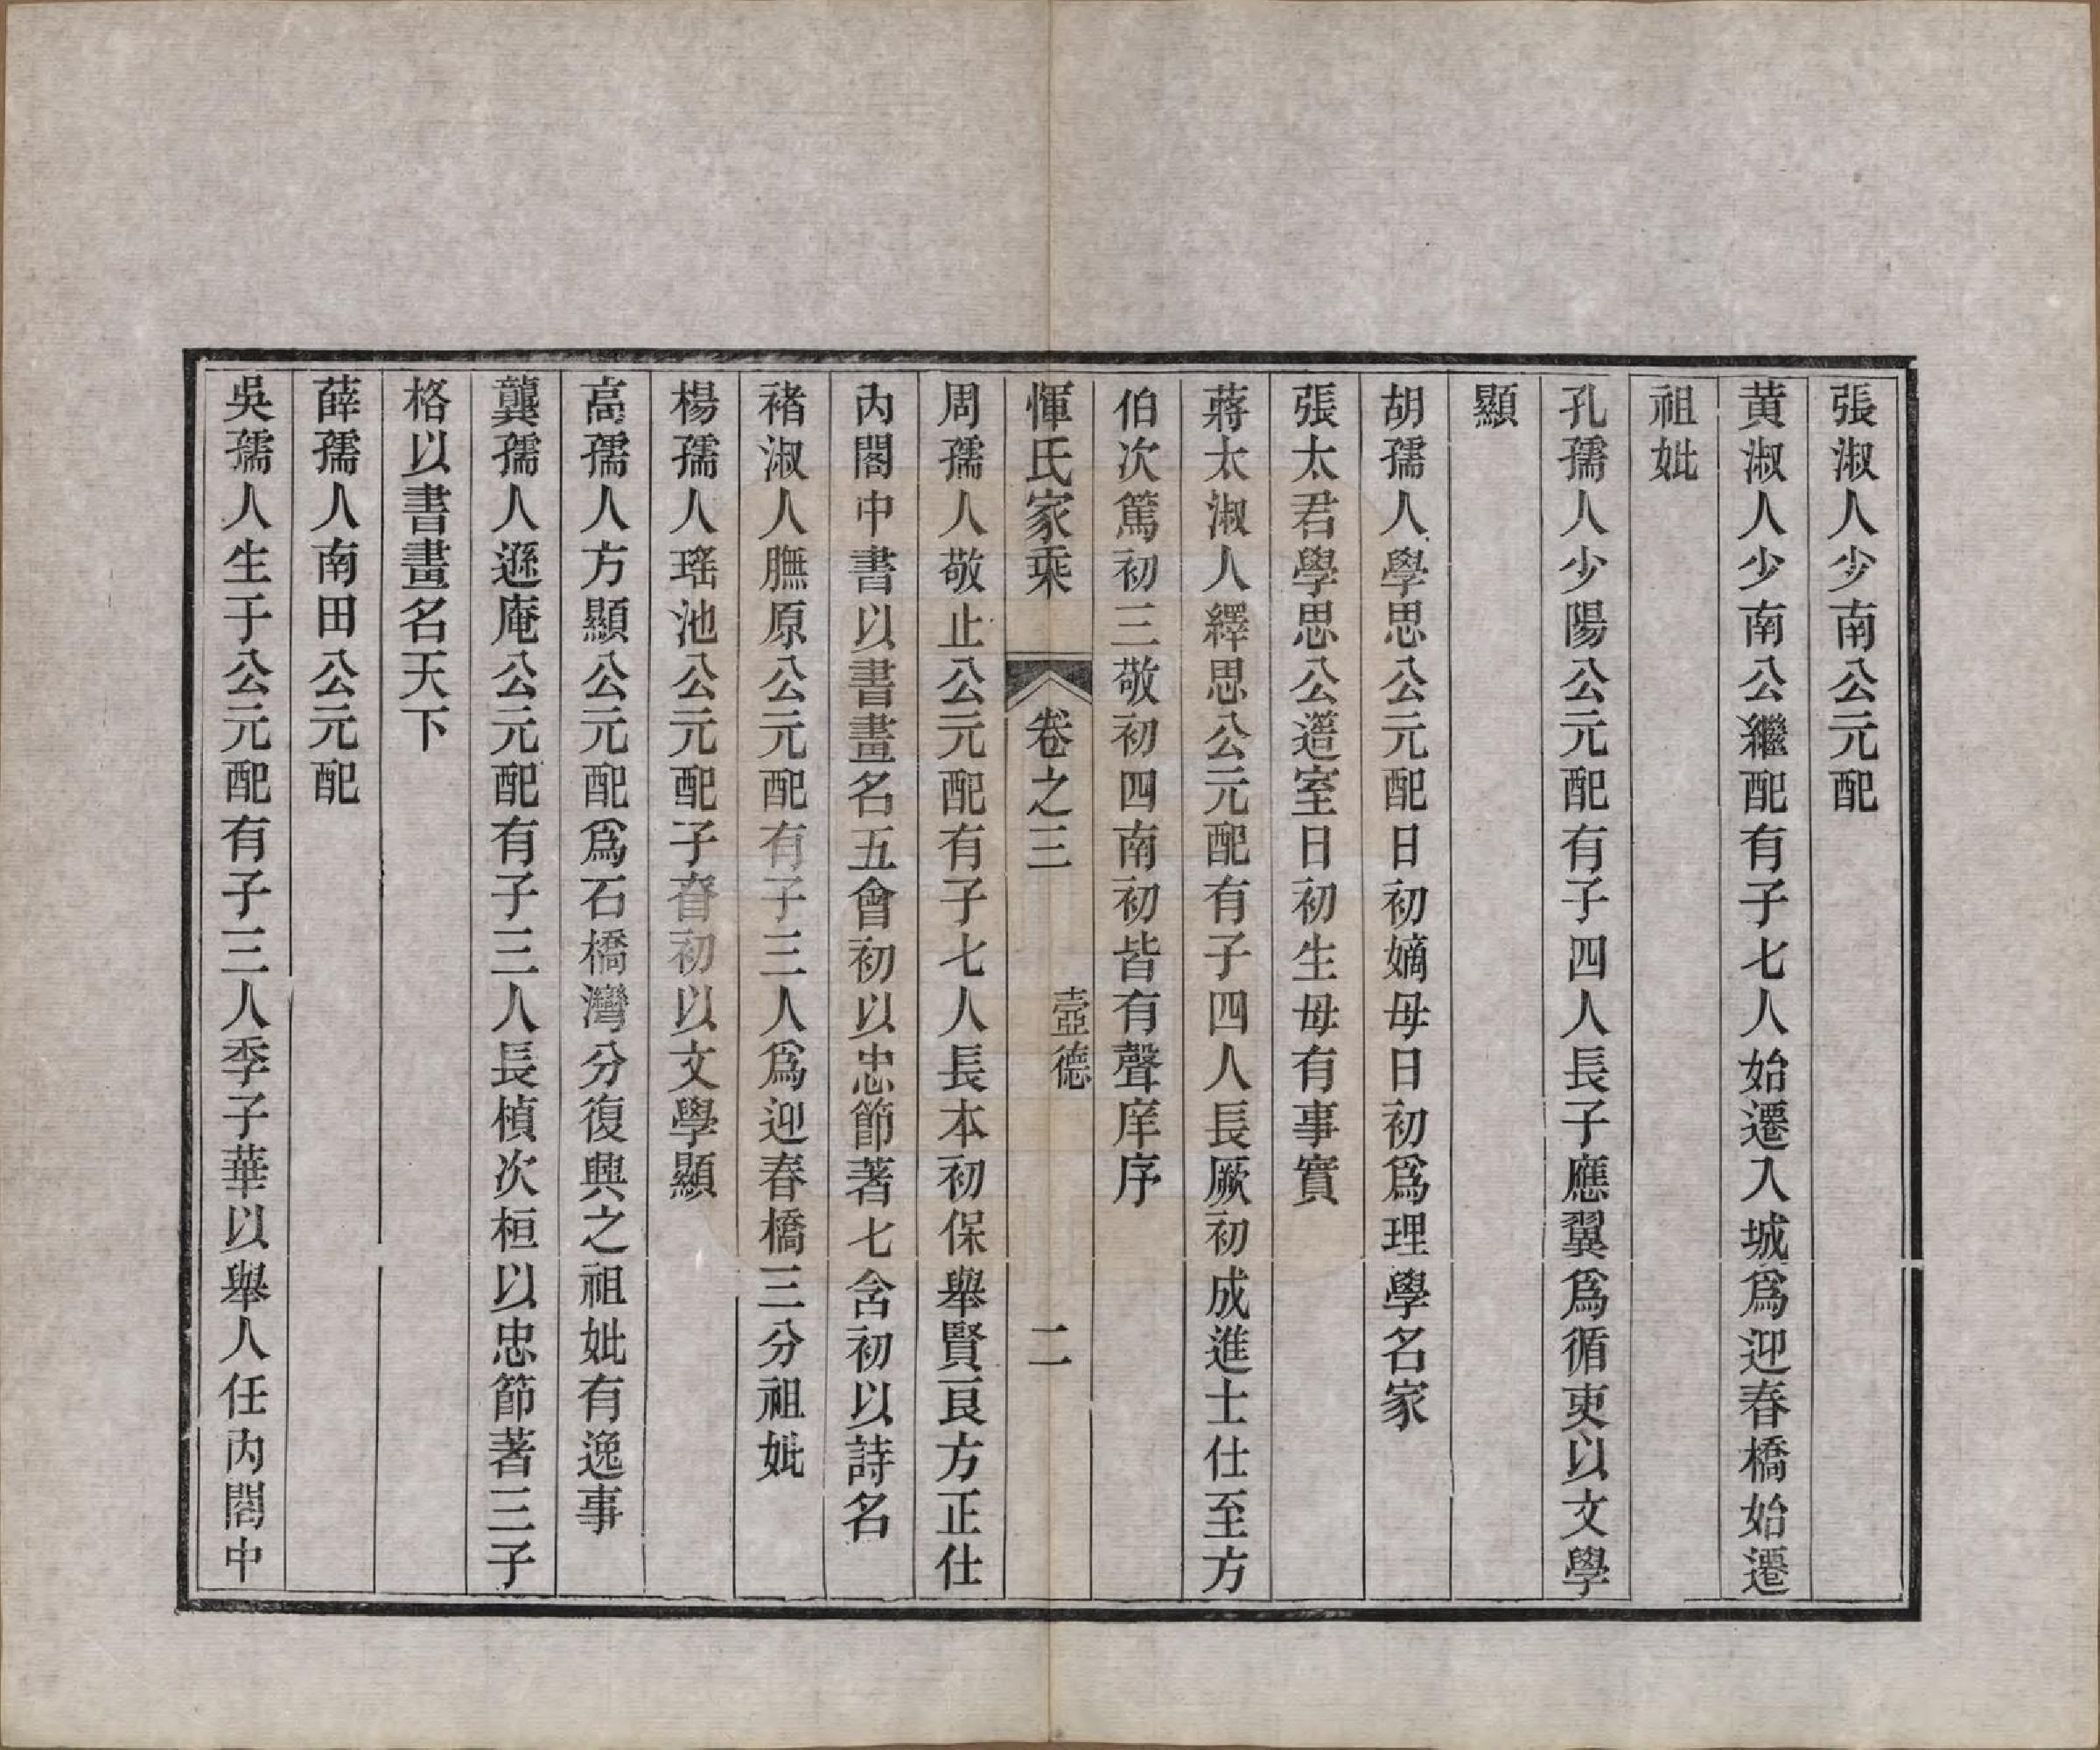 張淑人少南公元配
黃淑人少南公繼配有子七人始遷入城爲迎春橋始遷
祖妣
孔孺人少陽公元配有子四人長子應翼爲循吏以文學
顯
胡孺人學思公元配日初嫡母日初爲理學名家
張太君學思公簉室日初生母有事實
蔣太淑人繹思公元配有子四人長厥初成進士仕至方
伯次篤初三敬初四南初皆有聲庠序
惲氏家乘 卷之三 壼德 二
周孺人敬止公元配有子七人長本初保舉賢良方正仕
內閣中書以書畫名五會初以忠節著七含初以詩名
褚淑人膴原公元配有子三人爲迎春橋三分祖妣
楊孺人瑤池公元配子䅵初以文學顯
高孺人方顯公元配爲石橋灣分復興之祖妣有逸事
龔孺人遜庵公元配有子三人長楨次桓以忠節著三子
格以書畫名天下
薛孺人南田公元配
吳孺人生于公元配有子三人季子華以舉人任內閣中